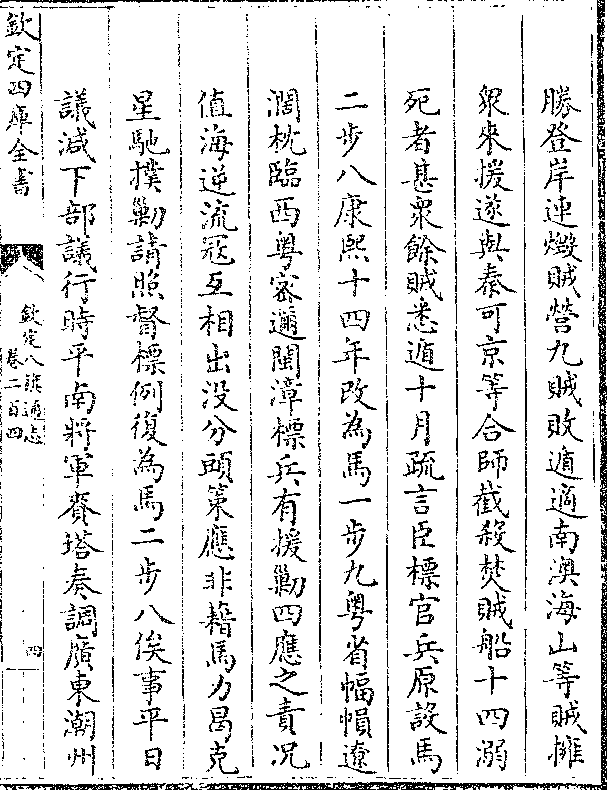 勝登岸連燬賊營九賊敗遁適南澳海山等賊擁
衆來援遂與秦可京等合師截殺焚賊船十四溺
死者甚衆餘賊悉遁十月疏言臣標官兵原設馬
二步八康熙十四年改為馬一步九粤省幅幀遼
濶枕臨西粤密邇閩漳標兵有援勦四應之責况
值海逆流冦互相出没分頭策應非藉馬力曷克
星馳撲勦請照督標例復為馬二步八俟事平日
議減下部議行時平南將軍賚塔奏調廣東潮州
欽定四庫全書
欽定八旗通志
卷二百四
四